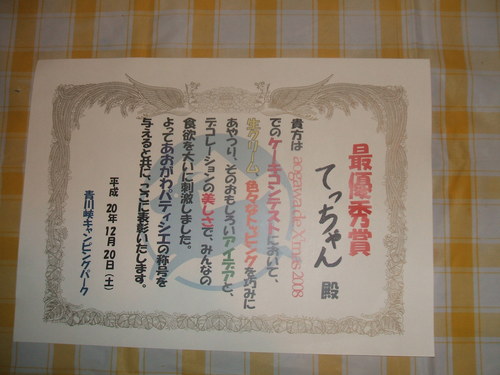 最優秀賞
てっちゃん 殿
貴方は aogawa de X'mas 2008
でのケーキコンテストにおいて、
生クリーム、色々なトッピングを巧みに
あやつり、そのおもしろいアイデアと、
デコレーションの美しさで、みんなの
食欲を大いに刺激しました。
よってあおがわパティシエの称号を
与えると共に、ここに表彰いたします。
平成 20年12月20日(土)
青川峡キャンピングパーク